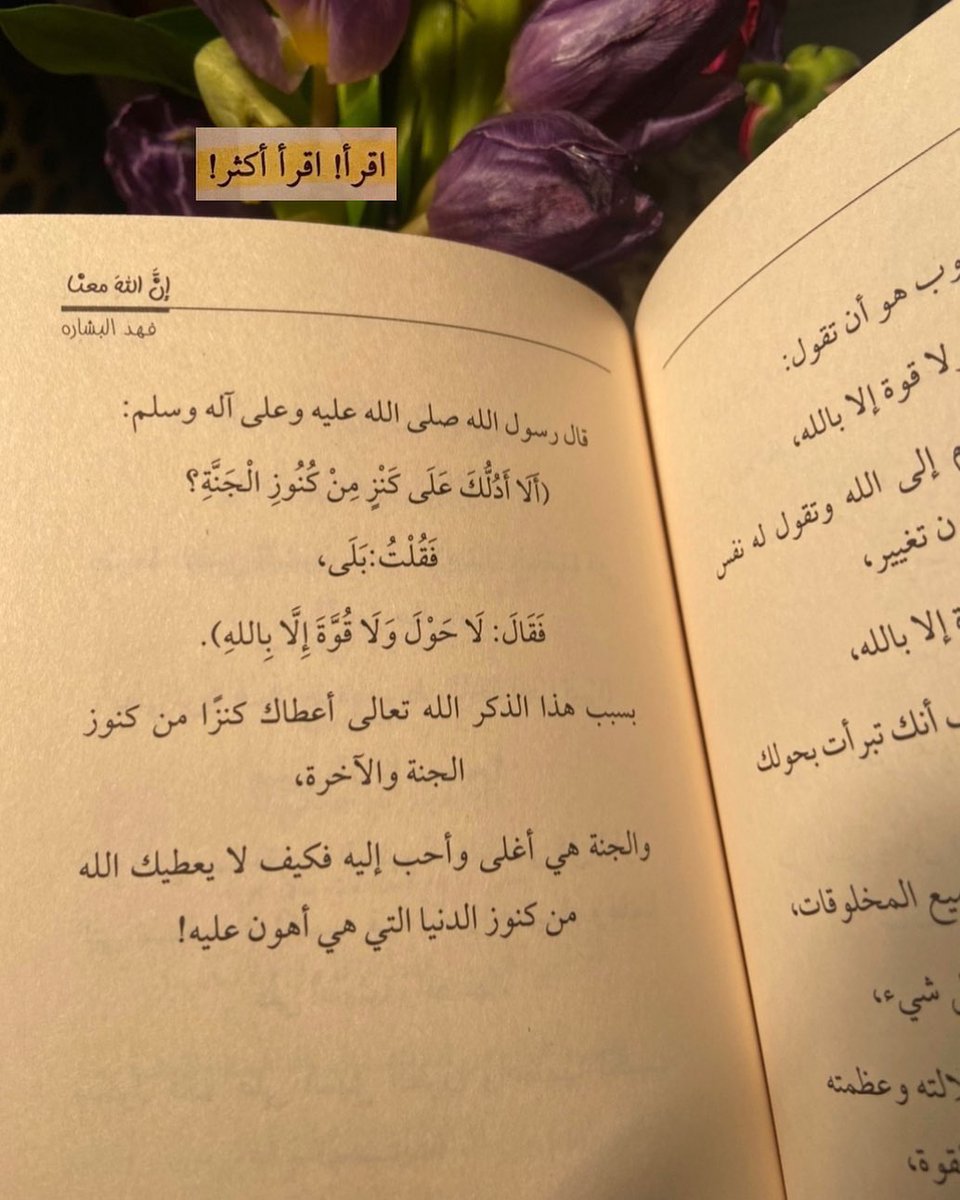 اقرأ! اقرأ أكثر!
إنَّ اللهَ معنا
فهد البشاره
قال رسول الله صلى الله عليه وعلى آله وسلم:
(أَلَا أَدُلُّكَ عَلَى كَنْزٍ مِنْ كُنُوزِ الْجَنَّةِ؟
فَقُلْتُ:بَلَى،
فَقَالَ: لَا حَوْلَ وَلَا قُوَّةَ إِلَّا بِاللهِ).
بسبب هذا الذكر الله تعالى أعطاك كنزًا من كنوز
الجنة والآخرة،
والجنة هي أغلى وأحب إليه فكيف لا يعطيك الله
من كنوز الدنيا التي هي أهون عليه!
هو أن تقول:
قوة إلا بالله،
إلى الله وتقول له نفس
تغيير،
إلا بالله،
أنك تبرأت بحولك
المخلوقات،
شيء،
وعظمته